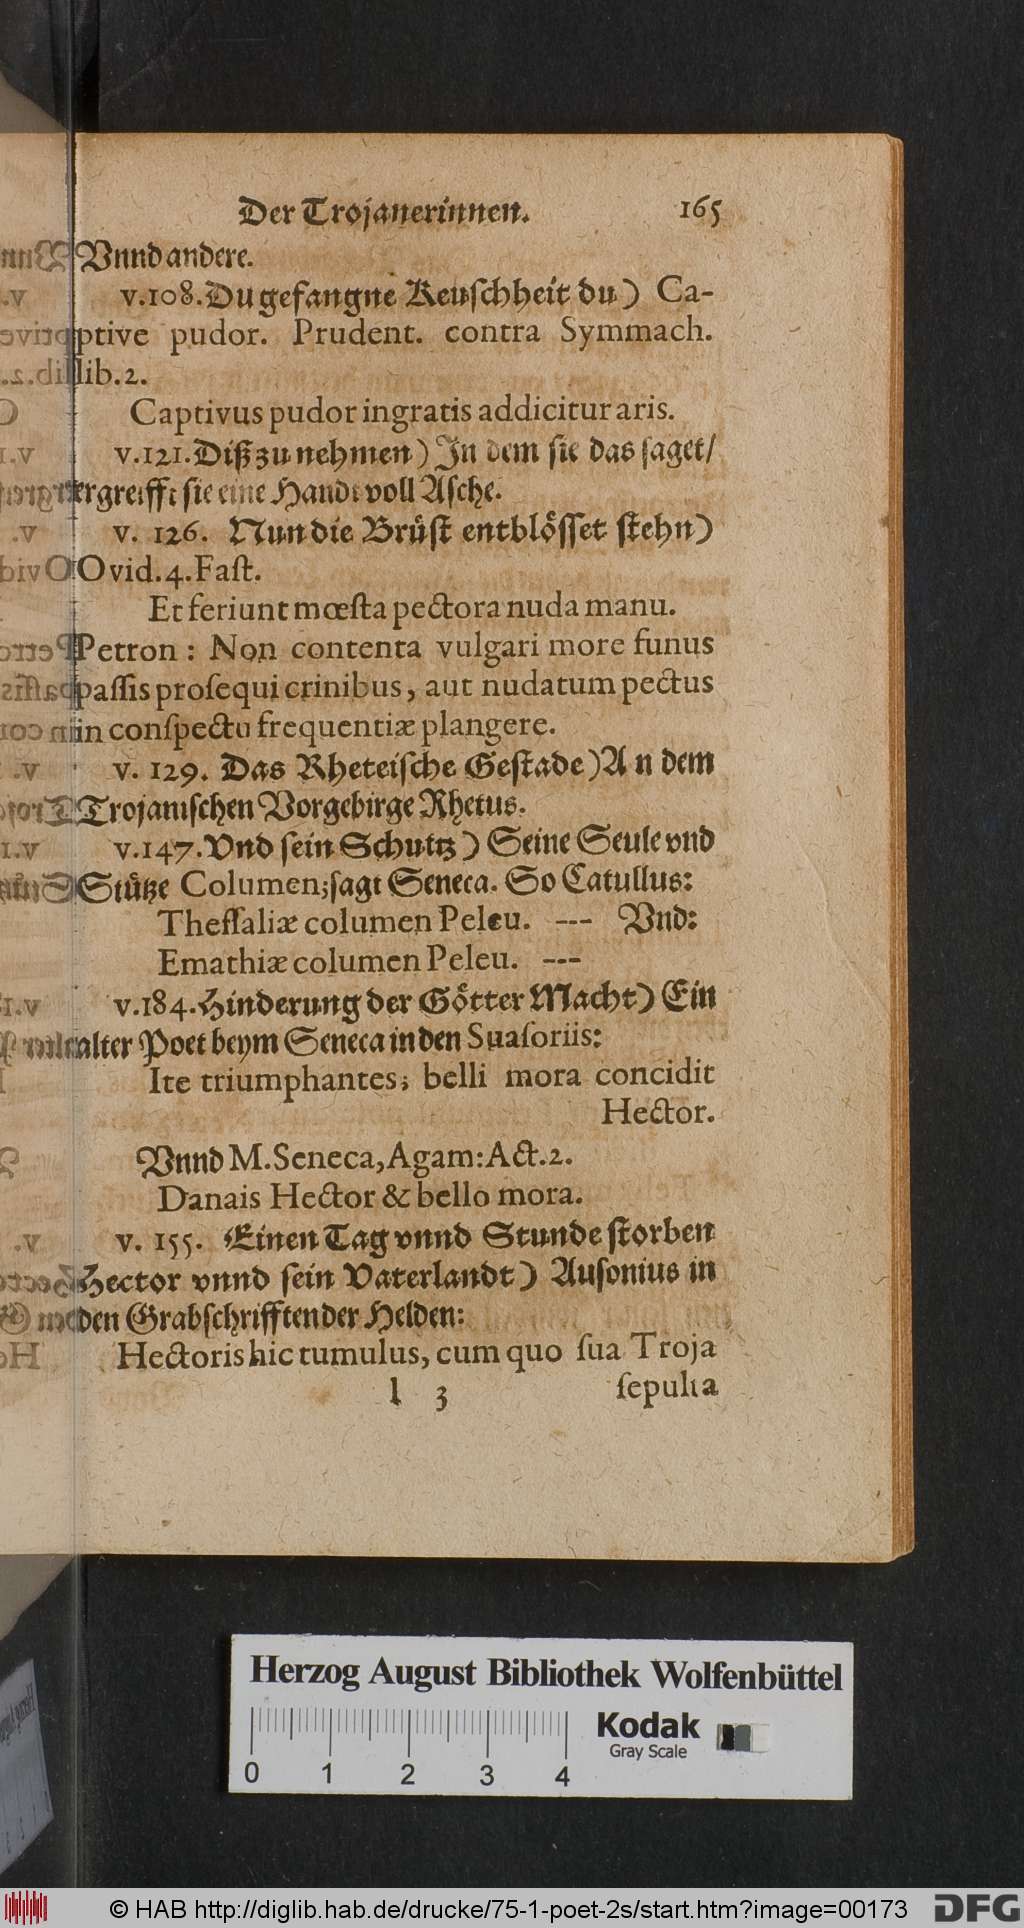 Der Trojanerinnen. 165
Vnnd andere.
v.108. Du gefangne Keuſchheit du) Ca-
ptive pudor. Prudent. contra Symmach.
lib.2.
Captivus pudor ingratis addicitur aris.
v.121. Diß zu nehmen) In dem ſie das ſaget/
ergreifft ſie eine Handt voll Aſche.
v. 126. Nun die Bruͤſt entbloͤſſet ſtehn)
Ovid. 4. Faſt.
Et feriunt mœſta pectora nuda manu.
Petron: Non contenta vulgari more funus
paſſis proſequi crinibus, aut nudatum pectus
in conſpectu frequentiæ plangere.
v. 129. Das Rheteiſche Geſtade) An dem
Trojaniſchen Vorgebirge Rhetus.
v.147. Vnd ſein Schutz) Seine Seule vnd
Stuͤtze Columen; ſagt Seneca. So Catullus:
Theſſaliæ columen Peleu. --- Vnd:
Emathiæ columen Peleu. ---
v.184. Hinderung der Goͤtter Macht) Ein
alter Poet beym Seneca in den Suaſoriis:
Ite triumphantes; belli mora concidit
Hector.
Vnnd M. Seneca, Agam: Act. 2.
Danais Hector & bello mora.
v. 155. Einen Tag vnnd Stunde ſtorben
Hector vnnd ſein Vaterlandt) Auſonius in
den Grabſchrifften der Helden:
Hectoris hic tumulus, cum quo ſua Troja
l 3 ſepulta
Herzog August Bibliothek Wolfenbüttel
Kodak
Gray Scale
0 1 2 3 4
© HAB http://diglib.hab.de/drucke/75-1-poet-2s/start.htm?image=00173
DFG